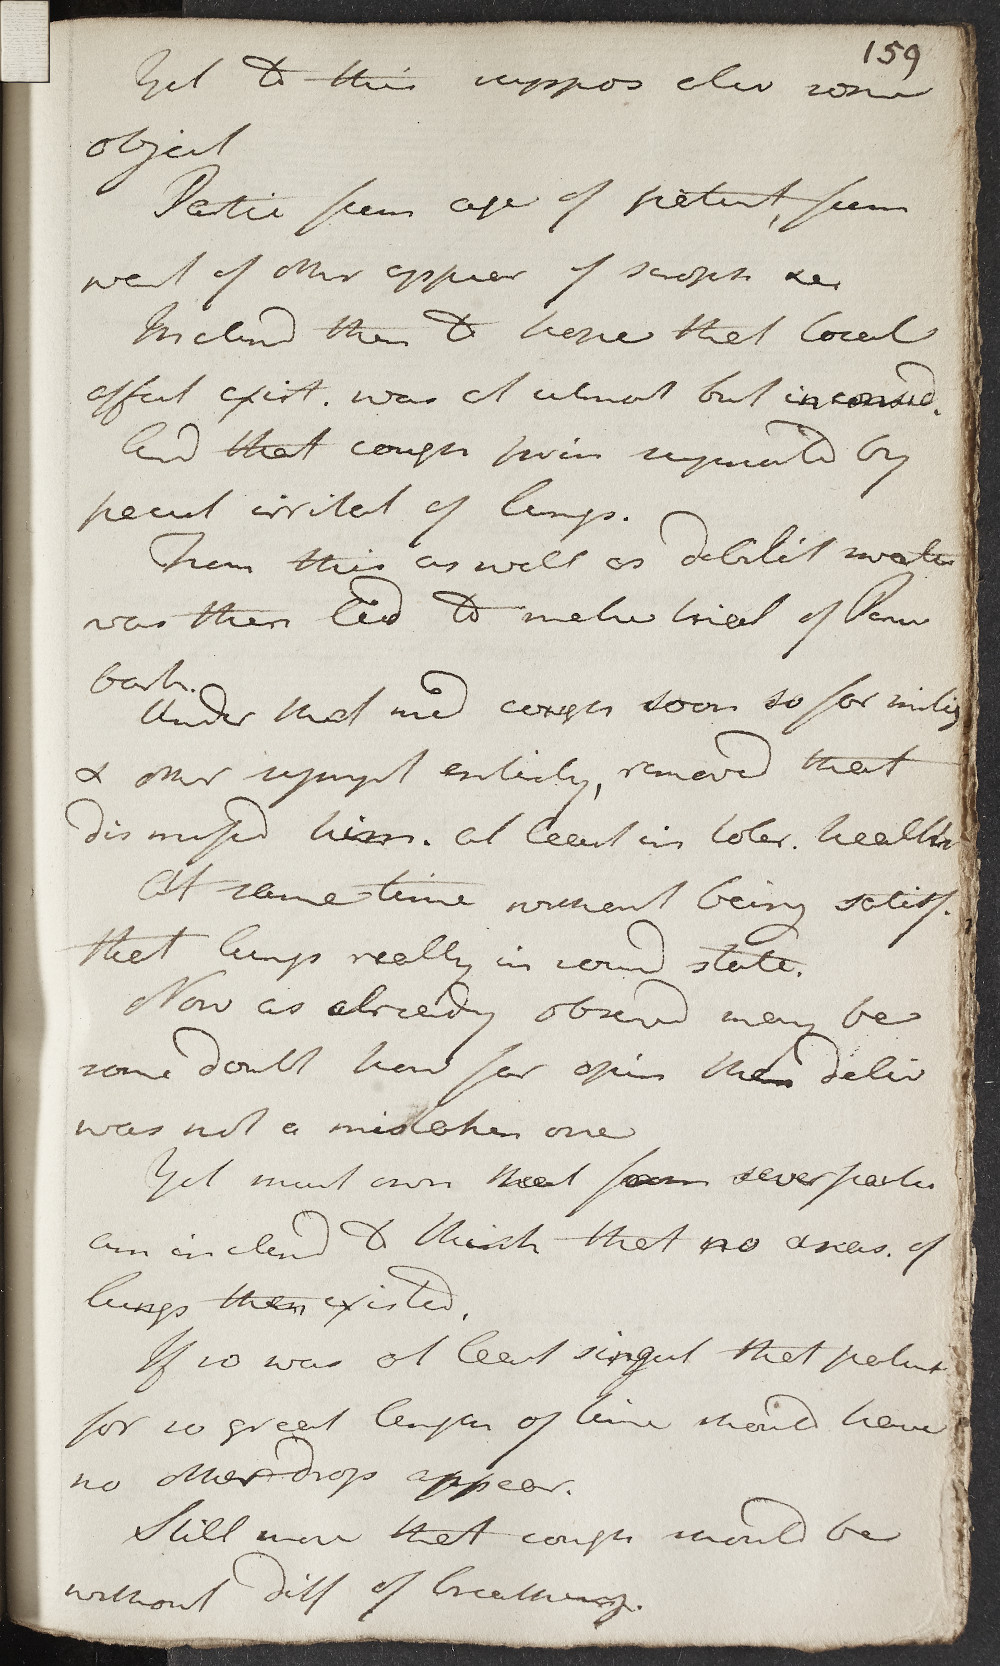 159
Yet to this suppos also some
object
Partic from age of patient, from
want of other appear of scroph &c
Inclind then to hope that local
affect exist. was at utmost but inconsid.
And that cough princ supported by
pecul irritat of lungs.
From this as well as debilit state
was then led to make trial of Peru
bark.
Under that med cough soon so far mitig
& other sympt entirely, removed that
dismissed him. at least in toler. health
At same time without being satisf.
that lungs really in sound state.
Now as already observd may be
some doubt how far opin then deliv
was not a mistaken one
Yet must own that from sever partic
am inclind to think that no aneas. of
lungs then existed.
If so was at least singul that patient
for so great length of time should have
no other drops appear.
Still more that cough should be
without diff of breathing.